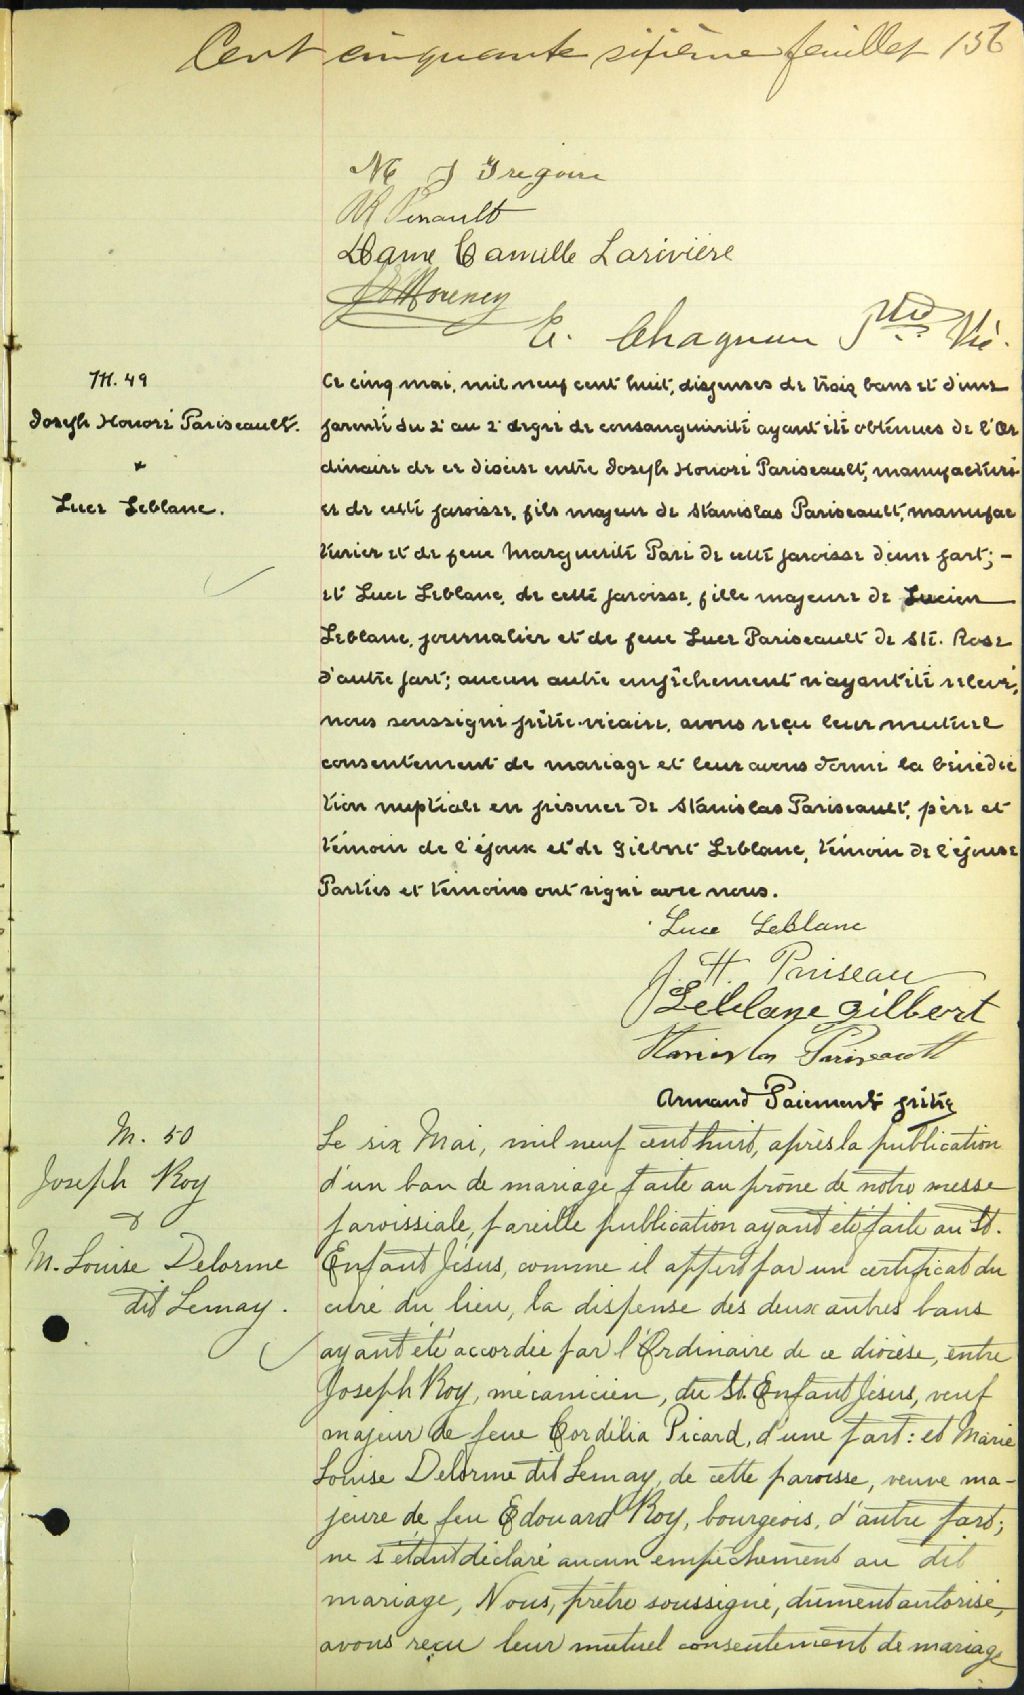 Cent cinquante sixième feuillet 156
J Gregoire
Renault
Dame Camille Larivière
E. Chagnon Ptre Vic.
M. 49
Joseph Honoré Pariseault.
+
Luce Leblanc.
Ce cinq mai, mil neuf cent huit, dispenses de trois bans et d'une
parenté du 2e au 2e degré de consanguinité ayant été obtenues de l'Or
dinaire de ce diocèse entre Joseph Honoré Pariseault, manufacturi-
er de cette paroisse, fils majeur de Stanislas Pariseault, manufac
turier et de feue Marguerite Paré de cette paroisse d'une part; -
et Luce Leblanc, de cette paroisse, fille majeure de Lucien
Leblanc, journalier et de feue Luce Pariseault de Ste. Rose
d'autre part; aucun autre empêchement n'ayant été relevé,
nous soussigné prêtre-vicaire, avons reçu leur mutuel
consentement de mariage et leur avons donné la bénédic
tion nuptiale en présence de Stanislas Pariseault, père et
témoin de l'époux et de Gilbert Leblanc, témoin de l'épouse
Parties et témoins ont signé avec nous.
Luce Leblanc
J. H. Pariseau
Leblanc Gilbert
Stanislas Pariseault
Armand Paiement, prêtre
M. 50
Joseph Roy
&
M. Louise Delorme
dit Lemay.
Le six Mai, mil neuf cent huit, après la publication
d'un ban de mariage faite au prône de notre messe
paroissiale, pareille publication ayant été faite au St.
Enfant Jésus, comme il appert par un certificat du
curé du lieu, la dispense des deux autres bans
ayant été accordée par l'Ordinaire de ce diocèse, entre
Joseph Roy, mécanicien, du St. Enfant Jésus, veuf
majeur de feue Cordélia Picard, d'une part: et Marie
Louise Delorme dit Lemay, de cette paroisse, veuve ma-
jeure de feu Edouard Roy, bourgeois, d'autre part;
ne s'étant déclaré aucun empêchement au dit
mariage, Nous, prêtre soussigné, dûment autorisé,
avons reçu leur mutuel consentement de mariage